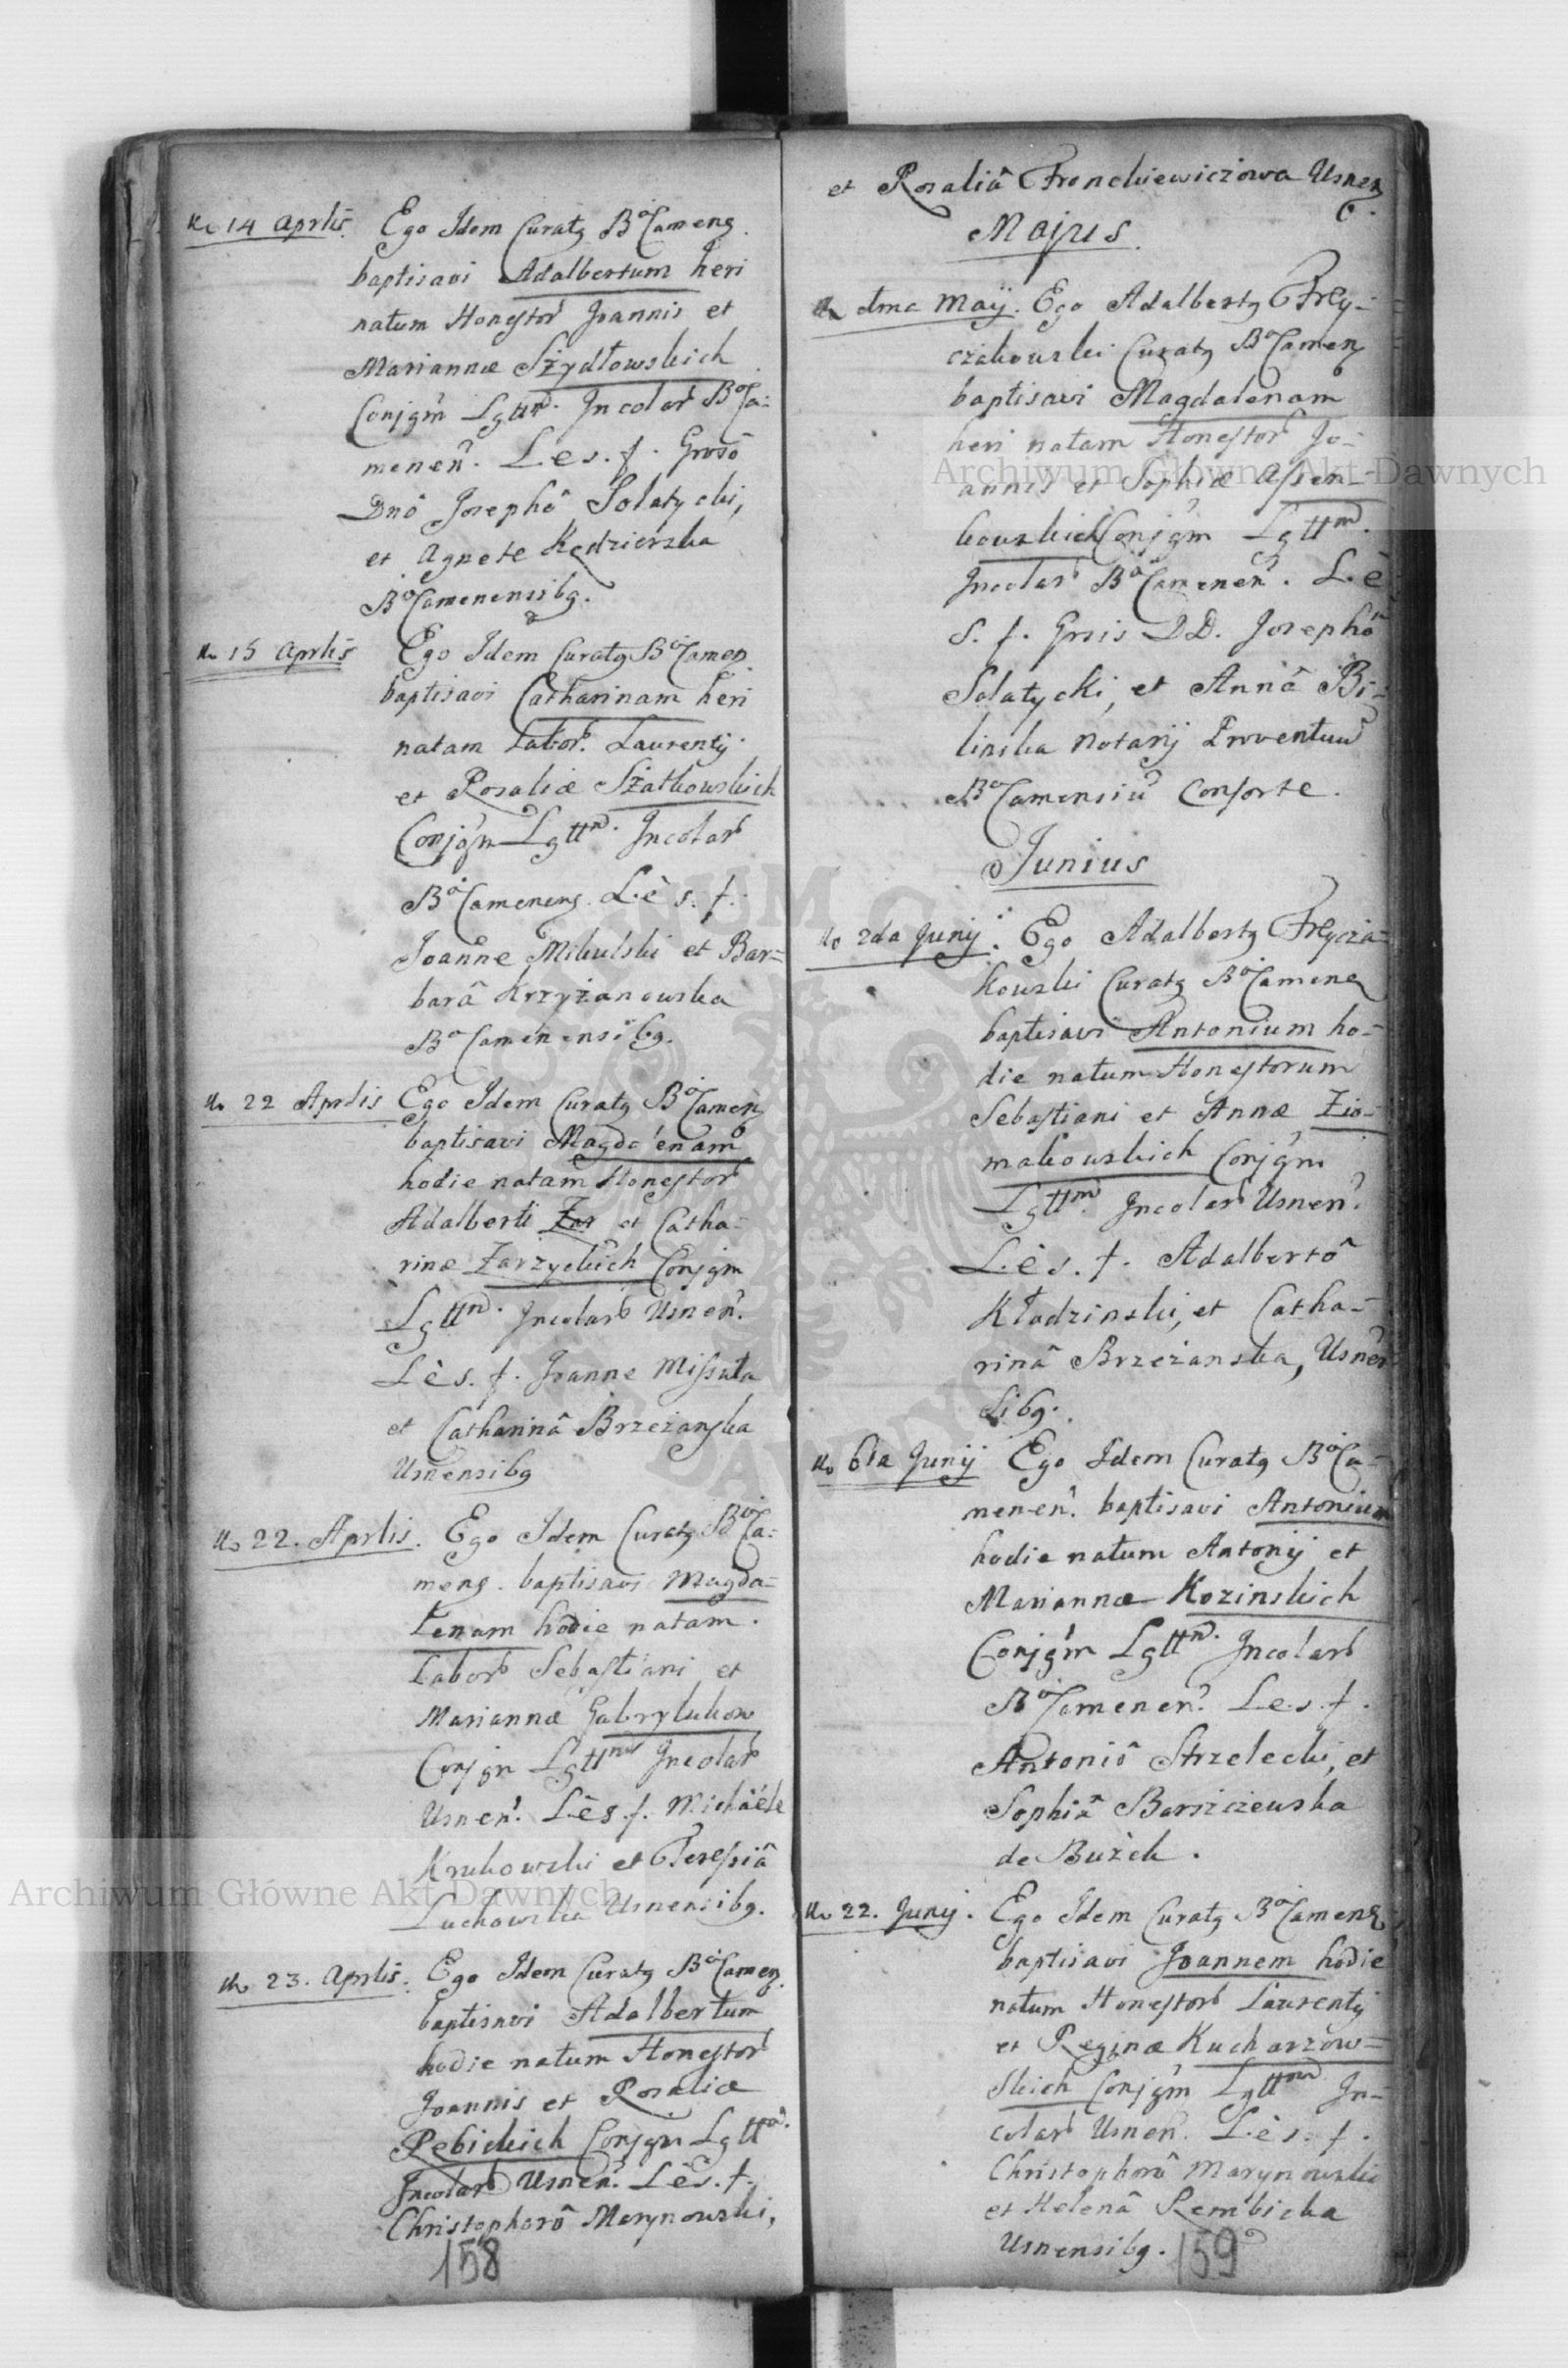 14 Aprlis. Ego Idem Curatg BoCameng.
baptisavi Adalbertum heri
natum Honestor Joannis et
Mariannæ Szydłowskich
Conjgm Lgttm. Incolar BoCa-
menen. Les. f. Groso
Dnô Josephô Solatycki,
et Agnete Kędzierska
BoCamenensibg.
15 Aprlis Ego Idem Curatg BoCamen.
baptisavi Catharinam heri
natam Labor. Laurentij
et Rosaliæ Szatkowskich
Conjgm Lgttm. Incolar
BoCameneng. Lès. f.
Joanne Mikulski et Bar-
barâ Krzyżanowska
BoCamenensibg.
22 Aprlis Ego Idem Curatg BoCamen
baptisavi Magdalenam
hodie natam Honestor
Adalberti Zar et Catha-
rinæ Zarzyckich Conjgm
Lgttm. Incolar Usnen.
Lès. f. Joanne Missuta
et Catharinâ Brzeżanska
Usnensibg
22. Aprlis. Ego Idem Curatg BoCa-
meng. baptisavi Magda-
lenam hodie natam.
Labor Sebastiani et
Mariannæ Gabrylukow
Conjgm Lgttm Incolar
Usnen. Lès. f. Michaële
Krukowski et Teressiâ
Luchowska Usnensibg.
23. Aprlis. Ego Idem Curatg BoCamen.
baptisavi Adalbertum
hodie natum Honestor
Joannis et Rosaliæ
Rebickich Conjgm Lgttm.
Incolar Usnen. Lès. f.
Christophorô Marynowski,
158
et Rosaliâ Fronckiewiczowa Usnen
Majus.
dma Maÿ. Ego Adalbertg Frey-
czakowski Curatg BoCamen
baptisavi Magdalenam
heri natam Honestor Jo-
annis et Sophiæ Assen-
kowskich Conjgm Lgttm.
Incolar BoCamenen. L.è
s. f. Grsis DD. Josephô
Solatycki, et Annâ Bi-
linska Notarÿ Proventuum
BoCamensiu Consorte.
Junius
2da Junij. Ego Adalbertg Freycza-
kowski Curatg BoCamenen
baptisavi Antonium ho-
die natum Honestorum
Sebastiani et Annæ Zio-
makowskich Conjgm
Lgttm. Incolar Usnen.
Lès. f. Adalbertô
Kłodzinski, et Catha-
rinâ Brzeżanska, Usnen
sibg.
6ta Junij Ego Idem Curatg BoCa-
menen. baptisavi Antonium
hodie natum Antonij et
Mariannæ Kozinskich
Conjgm Lgttm. Incolar
BoCamenen. Les. f.
Antoniô Strzelecki, et
Sophiâ Barszczewska
de Bużek.
22. Junij. Ego Idem Curatg BoCameng
baptisavi Joannem hodie
natum Honestor Laurentij
et Reginæ Kucharzow-
skich Conjgm Lgttm In-
colar Usnen. Lès. f.
Christophorô Marynowski
et Helenâ Rembicka
Usnensibg.
159
Archiwum Główne Akt Dawnych
Archiwum Główne Akt Dawnych